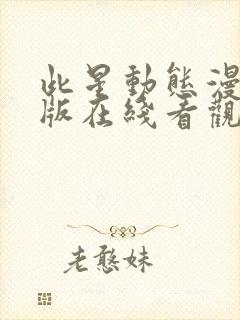 此星動態漫
版在綫看觀
老憨妹